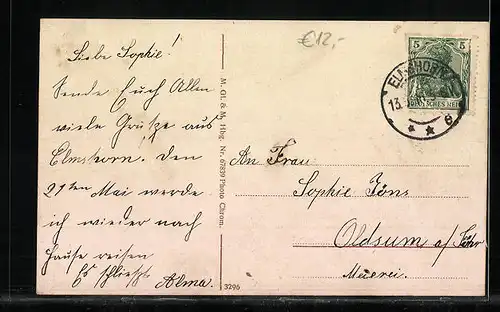 €12,-
Liebe Sophie!
Sende Euch Allen
viele Grüße aus
Elmshorn. Den
21ten Mai werde
ich wieder nach
Hause reisen
Es schließt
Alma.
M. Gl. & M., Hbg. Nr. 67839 Photo Chrom.
3296
5 5
DEUTSCHES REICH
ELMSHORN
13.
An Frau
Sophie Jöns
Oldsum a/Föhr